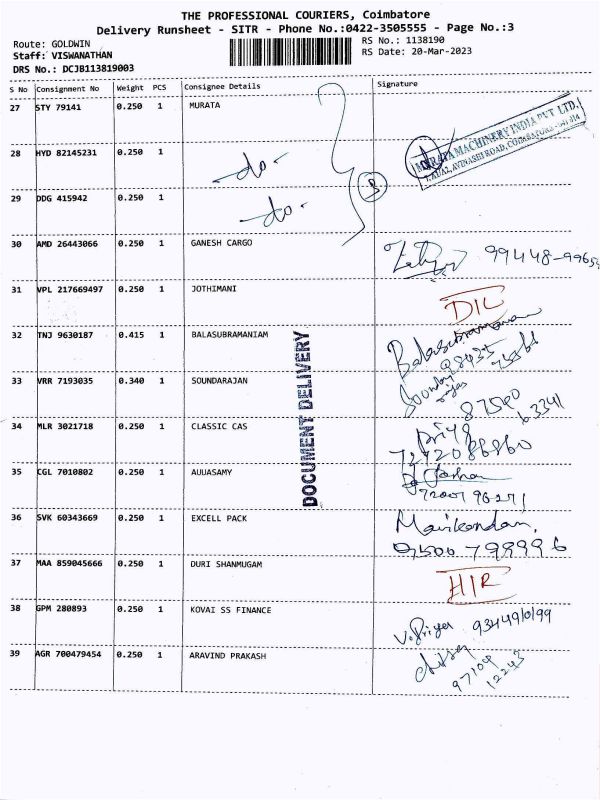 THE PROFESSIONAL COURIERS, Coimbatore
Delivery Runsheet - SITR - Phone No.:0422-3505555 - Page No.:3
Route: GOLDWIN RS No.: 1138190
Staff: VISWANATHAN RS Date: 20-Mar-2023
DRS No.: DCJB113819003
S No Consignment No Weight PCS Consignee Details Signature
27 STY 79141 0.250 1 MURATA
MURATA MACHINERY INDIA PVT LTD.
AVINASHI ROAD, COIMBATORE
28 HYD 82145231 0.250 1 -do-
29 DDG 415942 0.250 1 -do- 3
30 AMD 26443066 0.250 1 GANESH CARGO 99448-99659
31 VPL 217669497 0.250 1 JOTHIMANI DIL
32 TNJ 9630187 0.415 1 BALASUBRAMANIAM Balasubramanian
33 VRR 7193035 0.340 1 SOUNDARAJAN 87540 63341
34 MLR 3021718 0.250 1 CLASSIC CAS priya
7242086860
35 CGL 7010802 0.250 1 AUUASAMY
72001 96271
36 SVK 60343669 0.250 1 EXCELL PACK Manikandan,
95007 99996
37 MAA 859045666 0.250 1 DURI SHANMUGAM HIR
38 GPM 280893 0.250 1 KOVAI SS FINANCE V.Priya 9344910199
39 AGR 700479454 0.250 1 ARAVIND PRAKASH
97109
12243
DOCUMENT DELIVERY